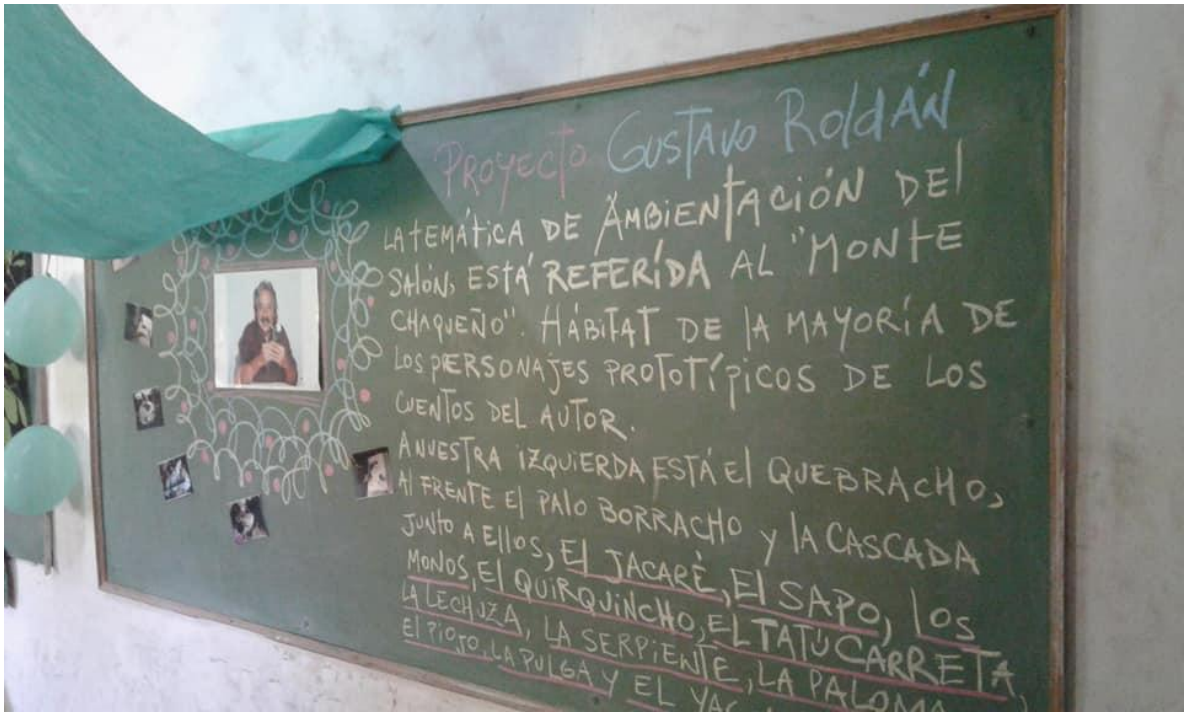 PROYECTO GUSTAVO ROLDÁN
LA TEMÁTICA DE AMBIENTACIÓN DEL
SALÓN, ESTÁ REFERIDA AL "MONTE
CHAQUEÑO". HÁBITAT DE LA MAYORÍA DE
LOS PERSONAJES PROTOTÍPICOS DE LOS
CUENTOS DEL AUTOR.
A NUESTRA IZQUIERDA ESTÁ EL QUEBRACHO,
AL FRENTE EL PALO BORRACHO Y LA CASCADA
JUNTO A ELLOS, EL JACARÉ, EL SAPO, LOS
MONOS, EL QUIRQUINCHO, EL TATÚ CARRETA,
LA LECHUZA, LA SERPIENTE, LA PALOMA,
EL PIOJO, LA PULGA Y EL